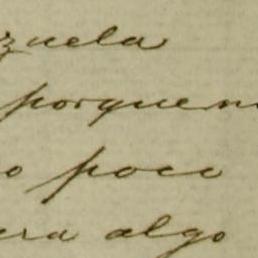 zuela
porquen
o poco
era algo